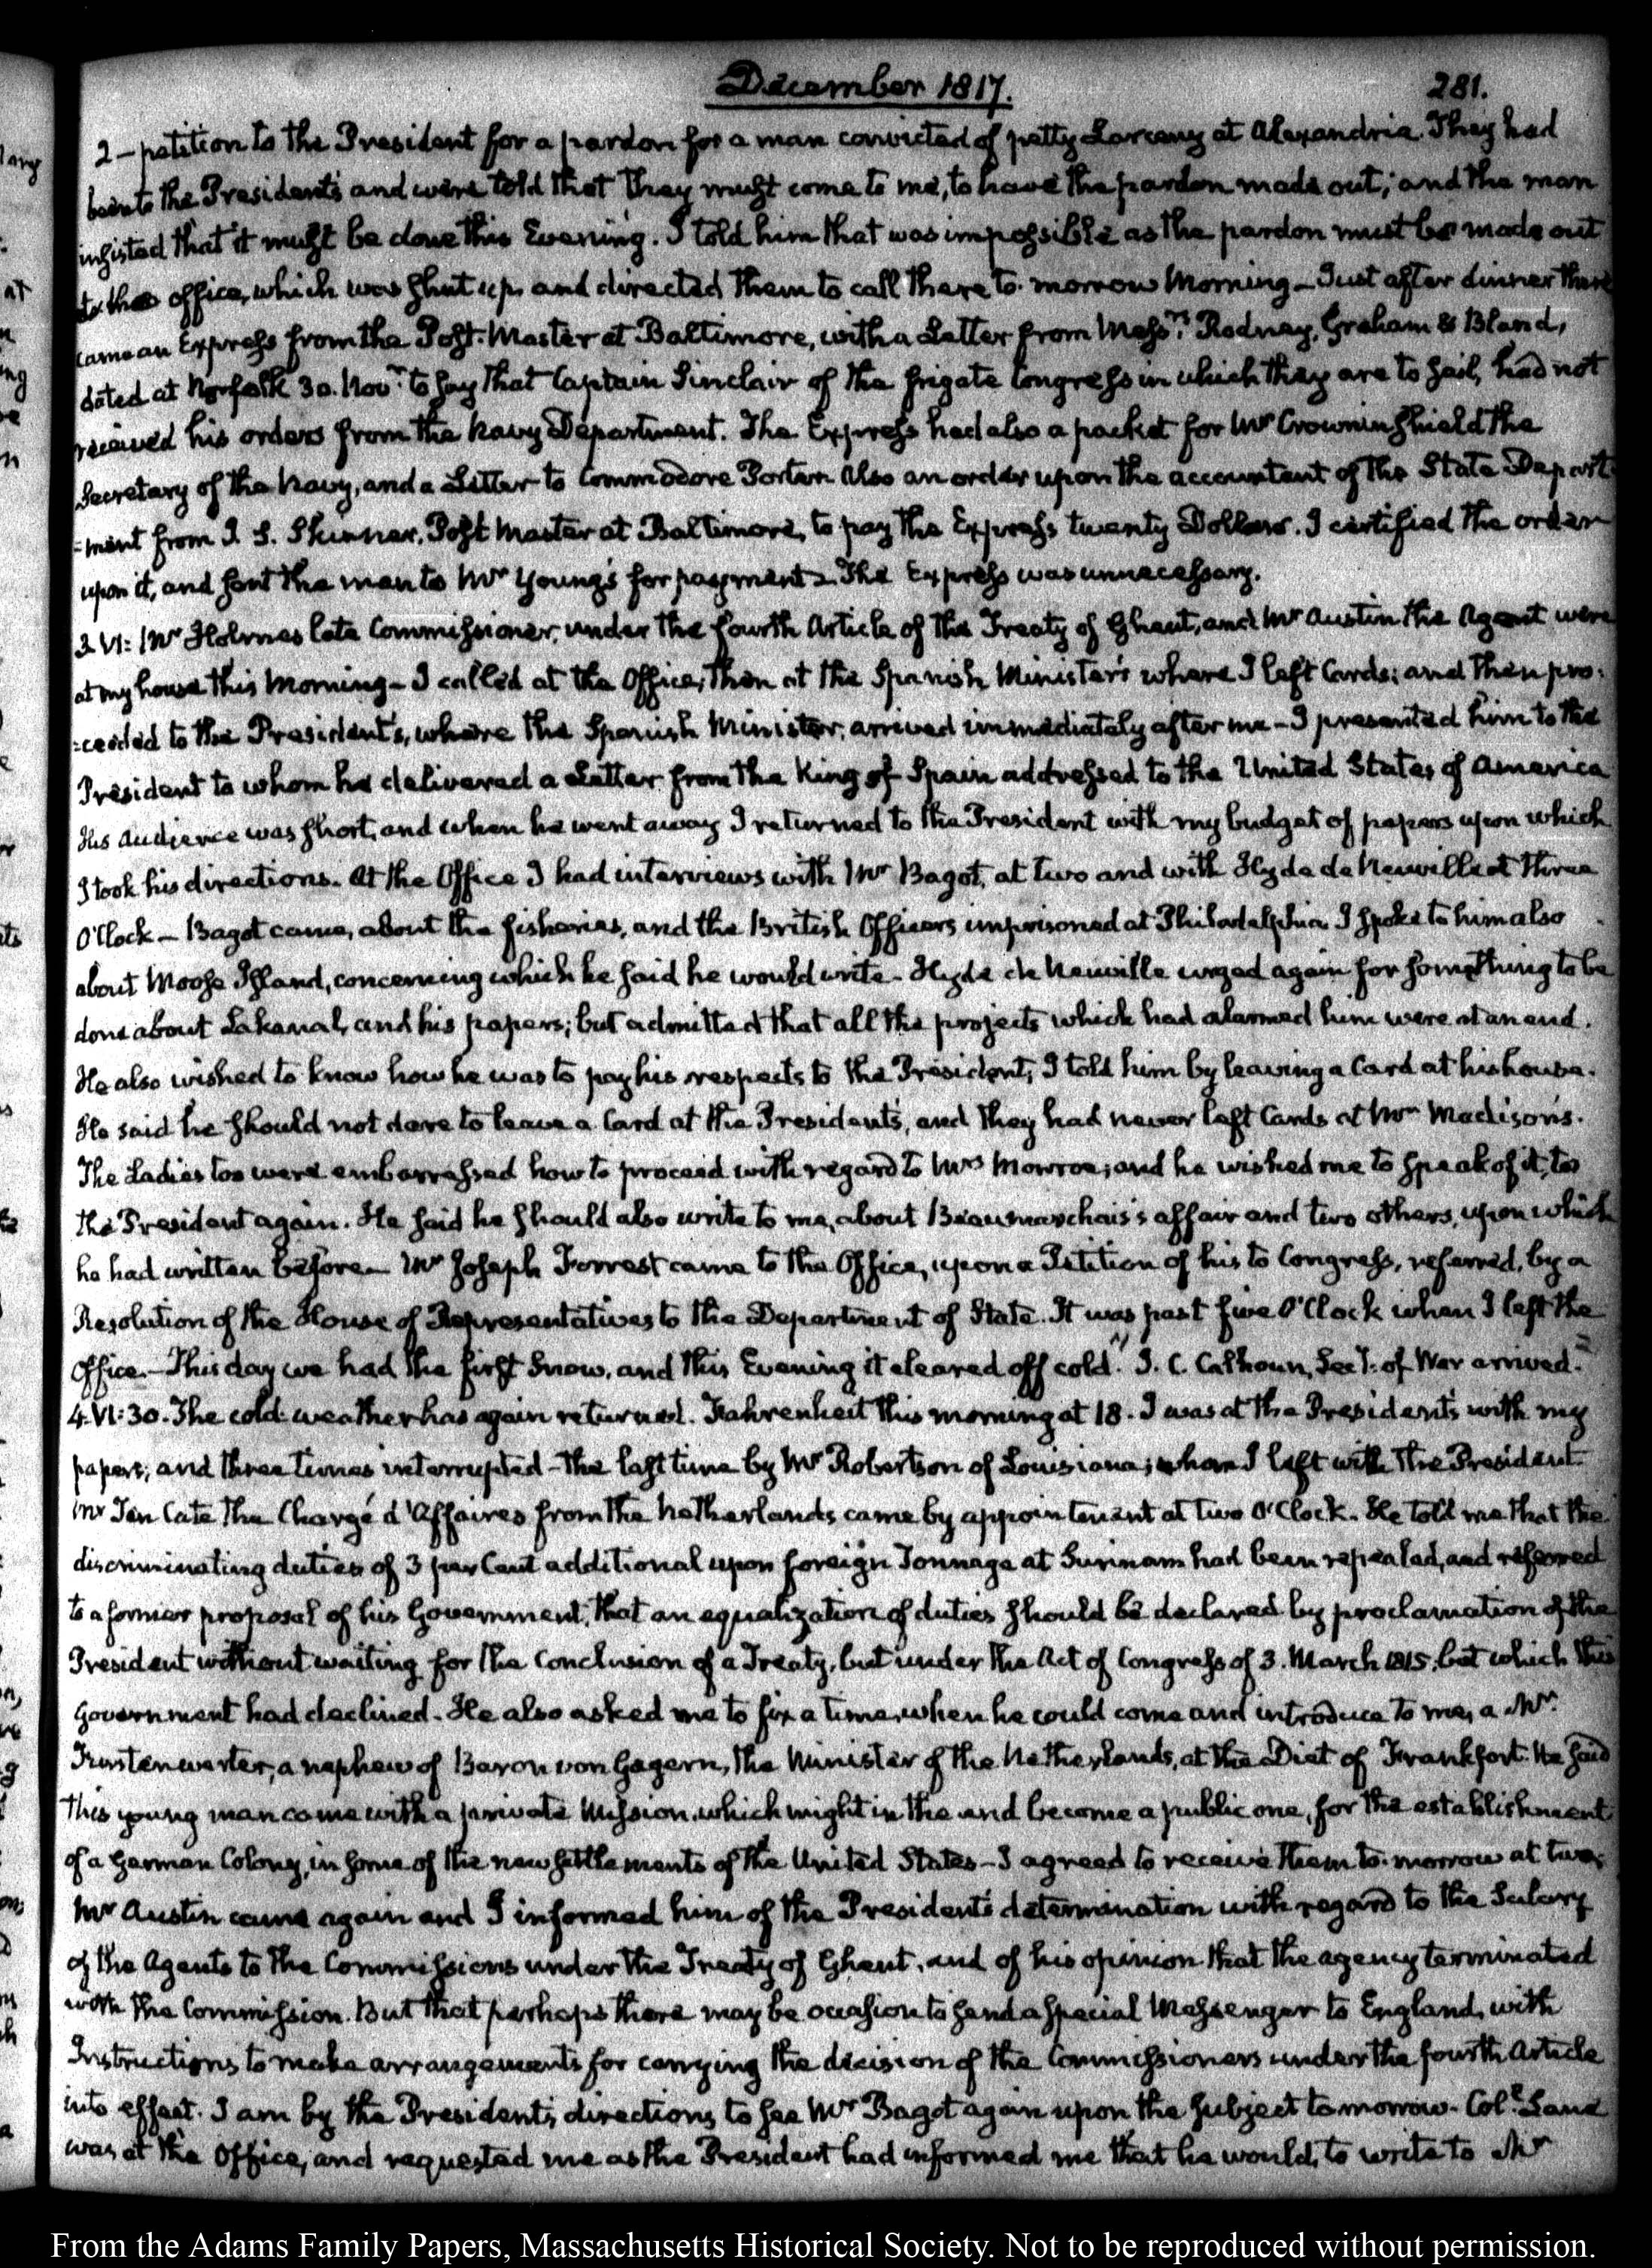 December 1817.
281.
2 - petition to the President for a pardon for a man convicted of petty Larceny at Alexandria. They had
been to the Presidents and were told that they must come to me, to have the pardon made out; and the man
insisted that it must be done this Evening. I told him that was impossible as the pardon must be made out
at the office, which was shut up, and directed them to call there to-morrow Morning - Just after dinner there
came an Express from the Post-Master at Baltimore, with a Letter from Messrs. Rodney, Graham & Bland,
dated at Norfolk 30. Novr. to say that Captain Sinclair of the frigate Congress in which they are to sail, had not
received his orders from the Navy Department. The Express had also a packet for Mr Crowninshield the
Secretary of the Navy, and a Letter to Commodore Porter. Also an order upon the accountant of the State Depart-
-ment from J. S. Skinner, Post Master at Baltimore, to pay the Express twenty Dollars. I certified the order
upon it, and sent the man to Mr Young's for payment. The Express was unnecessary.
3. VI: Mr Holmes late Commissioner, under the fourth Article of the Treaty of Ghent, and Mr Austin the Agent were
at my house this Morning - I called at the Office; then at the Spanish Minister's where I left Cards; and then pro-
-ceeded to the President's, where the Spanish Minister, arrived immediately after me - I presented him to the
President to whom he delivered a Letter from the King of Spain addressed to the United States of America
His Audience was short, and when he went away I returned to the President with my budget of papers upon which
I took his directions. At the Office I had interviews with Mr Bagot, at two and with Hyde de Neuville at three
O'Clock - Bagot came, about the fisheries, and the British Officers imprisoned at Philadelphia. I spoke to him also
about Moose Island, concerning which he said he would write - Hyde de Neuville urged again for something to be
done about Lakanal, and his papers; but admitted that all the projects which had alarmed him were at an end.
He also wished to know how he was to pay his respects to the President; I told him by leaving a Card at his house.
He said he should not dare to leave a Card at the Presidents, and they had never left Cards at Mr Madison's.
The Ladies too were embarrassed how to proceed with regard to Mrs Monroe; and he wished me to speak of it, to
the President again. He said he should also write to me, about Beaumarchais's affair and two others, upon which
he had written before - Mr Joseph Forrest came to the Office, upon a Petition of his to Congress, referred, by a
Resolution of the House of Representatives to the Department of State. It was past five O'Clock when I left the
Office. - This day we had the first Snow, and this Evening it cleared off cold. " J. C. Calhoun, Secy. of War arrived. "
4. VI:30. The cold weather has again returned. Fahrenheit this morning at 18. I was at the Presidents with my
papers; and three times interrupted - the last time by Mr Robertson of Louisiana; whom I left with the President.
Mr Ten Cate the Chargé d'Affaires from the Netherlands came by appointment at two O'Clock. He told me that the
discriminating duties of 3 per Cent additional upon foreign Tonnage at Surinam had been repealed, and referred
to a former proposal of his Government, that an equalization of duties should be declared by proclamation of the
President without waiting for the Conclusion of a Treaty, but under the Act of Congress of 3. March 1815, but which this
Government had declined. He also asked me to fix a time, when he could come and introduce to me, a Mr.
Furstenwerter, a nephew of Baron von Gagern, the Minister of the Netherlands, at the Diet of Frankfort. He said
this young man came with a private Mission, which might in the end become a public one, for the establishment
of a German Colony, in some of the new settlements of the United States - I agreed to receive them to-morrow at two.
Mr Austin came again and I informed him of the President's determination with regard to the Salary
of the Agents to the Commissions under the Treaty of Ghent, and of his opinion that the agency terminated
with the Commission. But that perhaps there may be occasion to send a special Messenger to England, with
Instructions to make arrangements for carrying the decision of the Commissioners under the fourth Article
into effect. I am by the President's directions to see Mr Bagot again upon the subject to-morrow. Coll. Lane
was at the Office, and requested me as the President had informed me that he would, to write to Mr
From the Adams Family Papers, Massachusetts Historical Society. Not to be reproduced without permission.